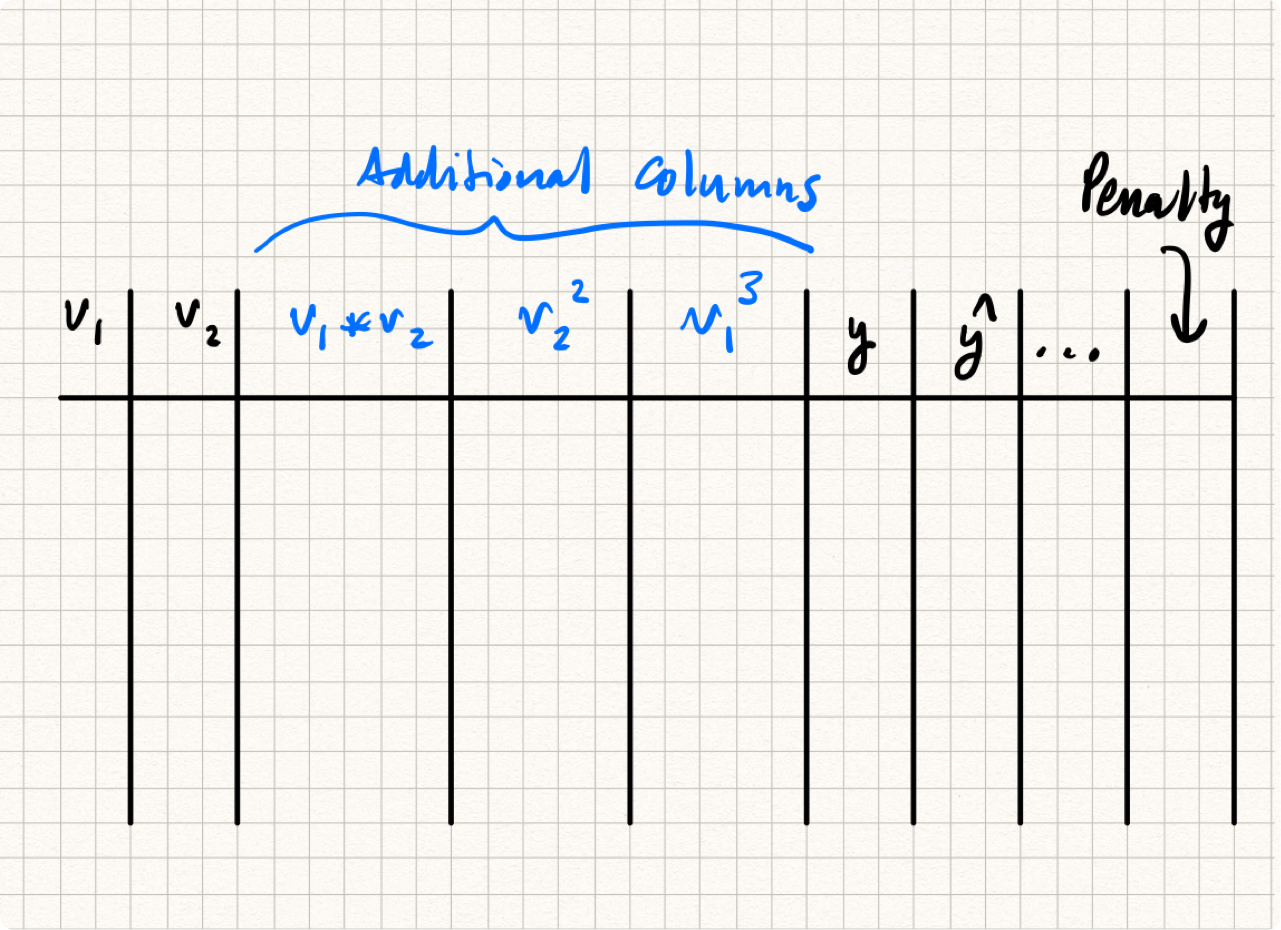 Additional Columns
Penalty
v₁ v₂ v₁ * v₂ v₂² v₁³ y ŷ ...